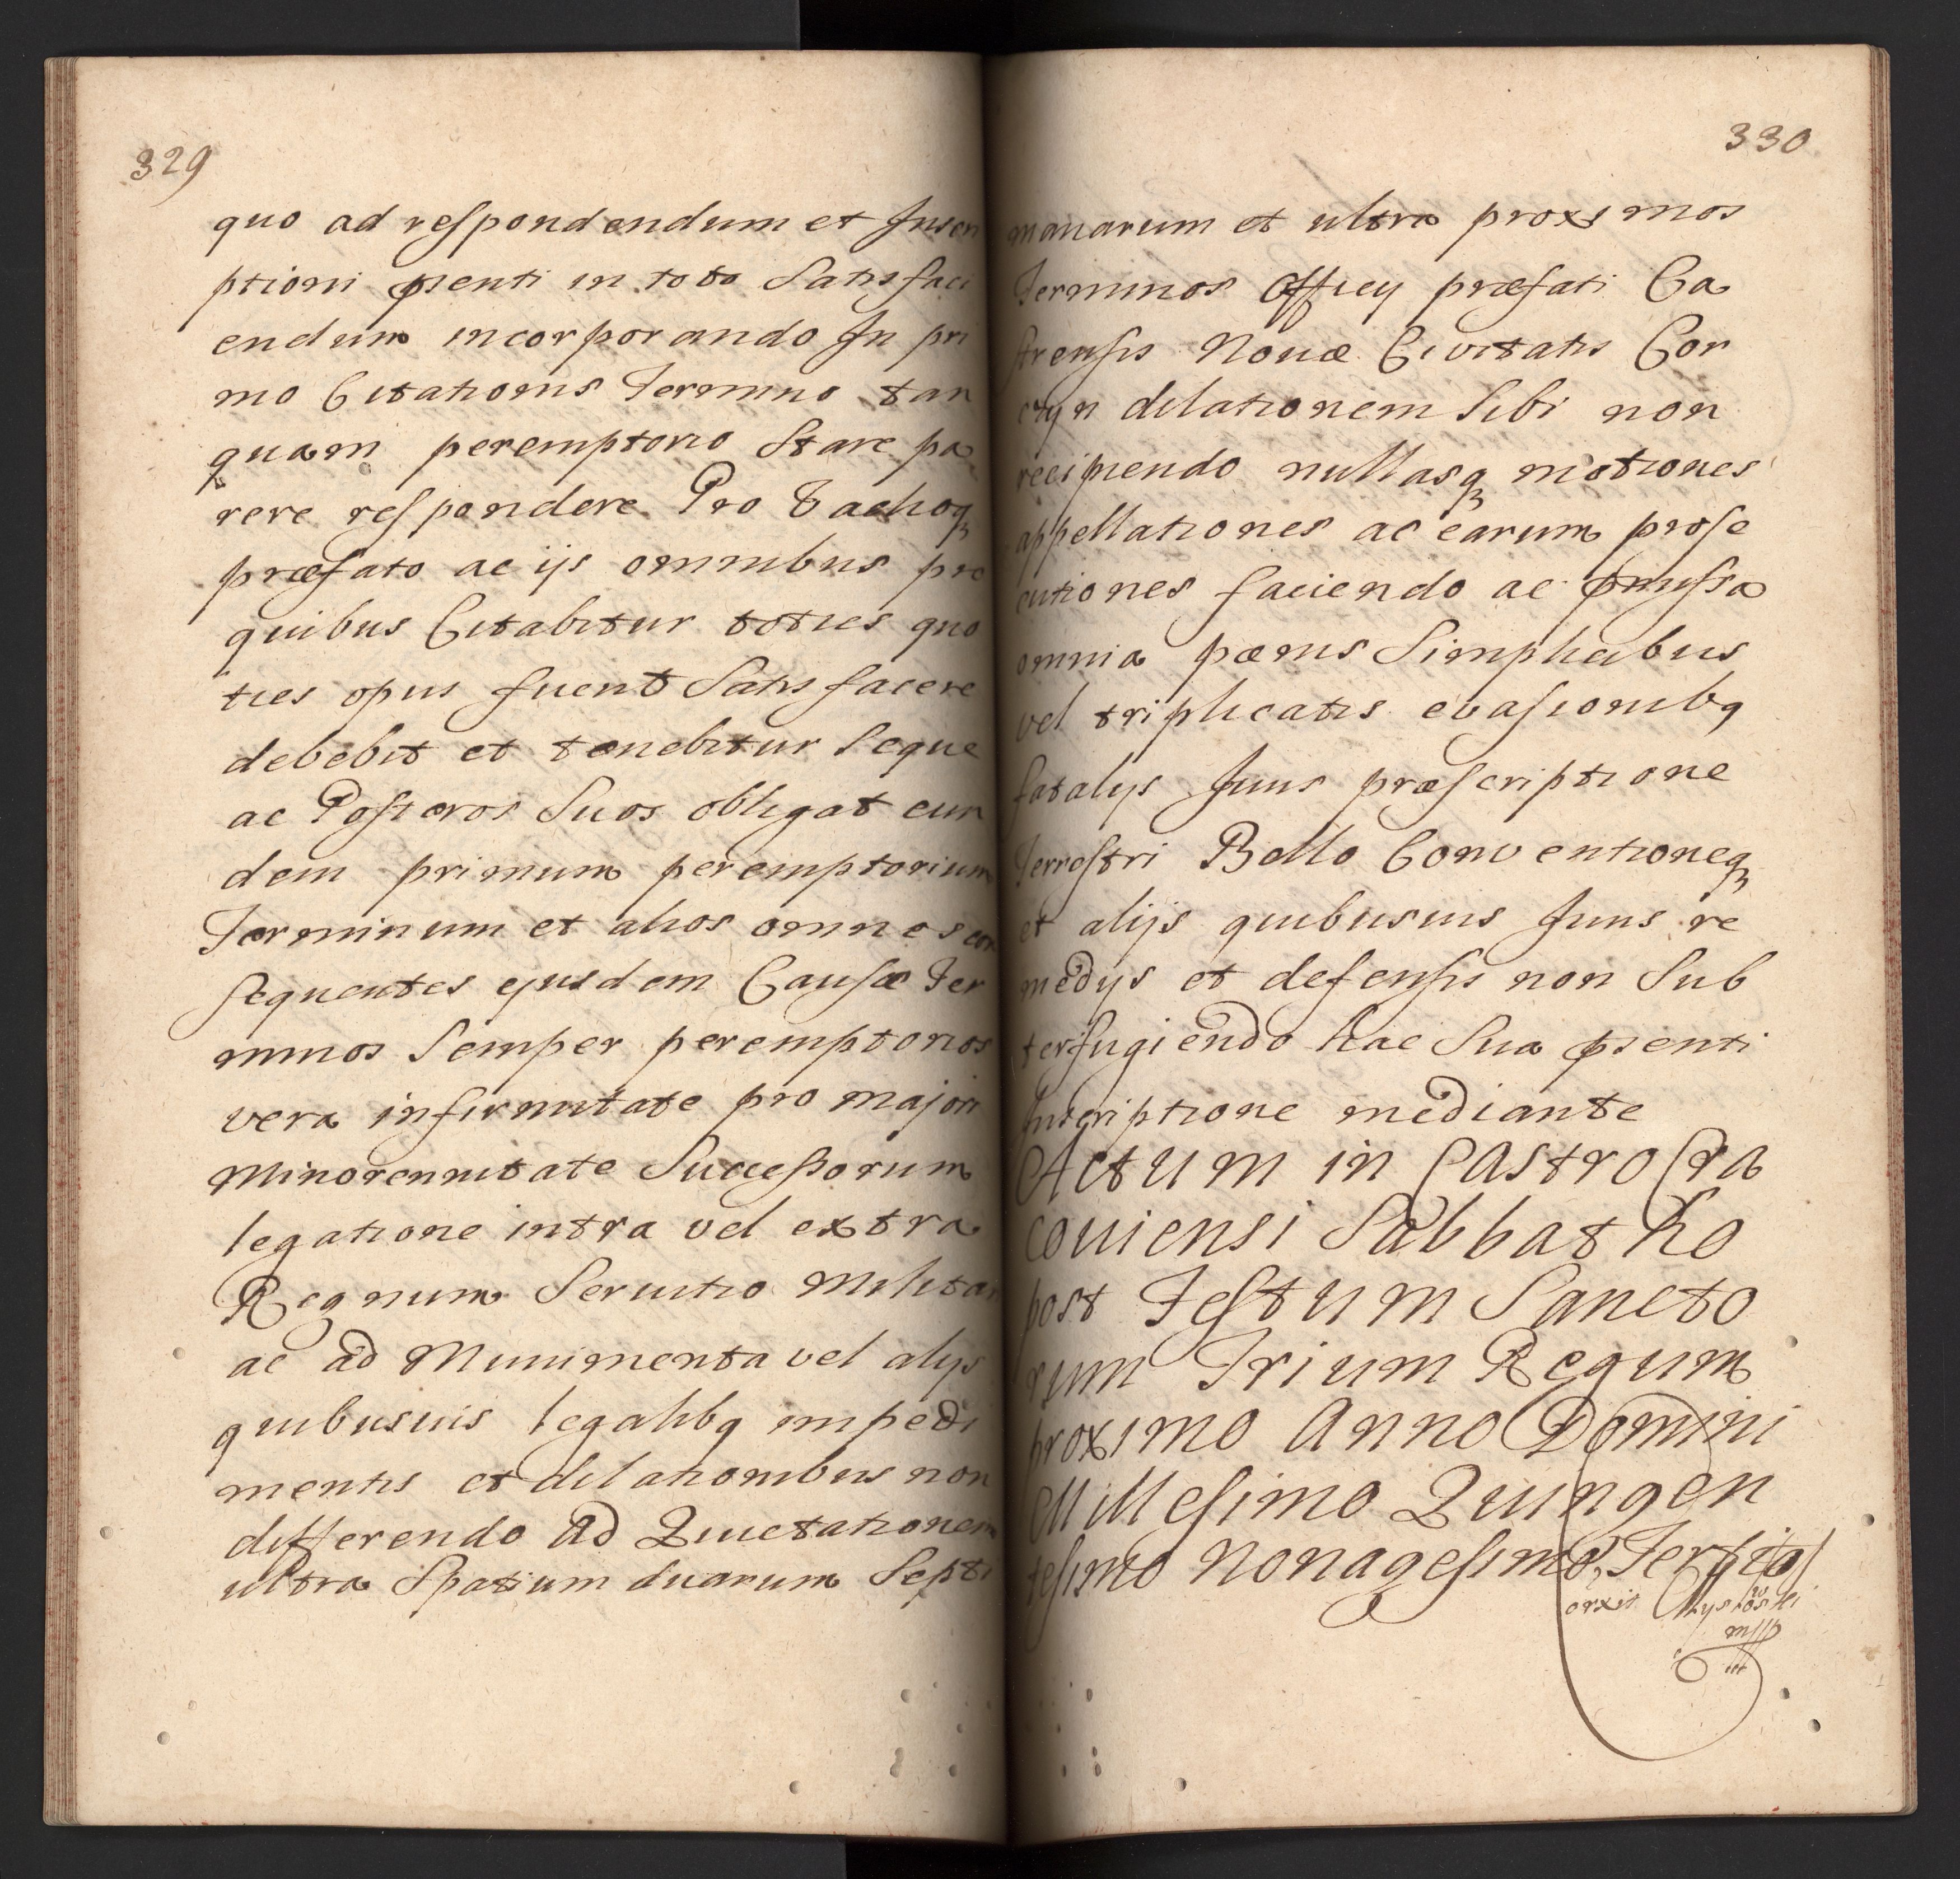 329
quo ad respondendum et Inscri
ptioni pnti in toto Satisfaci
endum incorporando In pri
mo Citationis Termino tan
quam peremptorio Stare pa
rere respondere Pro Vadioq
præfato ac ijs omnibus pro
quibus Citabitur toties quo
ties opus fuerit Satisfacere
debebit et tenebitur Seque
ac Posteros Suos obligat eun
dem primum peremptorium
Terminum et alios omnes con
sequentes ejusdem Causæ Ter
minos Semper peremptorios
vera infirmitate pro majori
Minorennitate Successorum
legatione intra vel extra
Regnum Servitio Militari
ac ad Munimenta vel alys
quibusuis legalibq impedi
mentis et dilationibus non
differendo Ad Quietationem
ultra Spatium duarum Septi
330
manarum et ultra proximos
Terminos Officy præfati Ca
strensis Nouæ Civitatis Cor
czyn dilationem Sibi non
recipiendo nullasq motiones
appellationes ac earum prose
cutiones faciendo ac pmissa
omnia pænis Simplicibus
vel triplicatis evasionibq
fatalys Juris præscriptione
Terrestri Bello Conventioneq
et alijs quibusuis Juris re
medys et defensis non Sub
terfugiendo hac Sua pnti
Inscriptione mediante
Actum in Castro Cra
couiensi Sabbatho
post Festum Sancto
rum Trium Regum
proximo Anno Domini
Millesimo Quingen
tesimo Nonagesimo Tertio
orxit
mpp